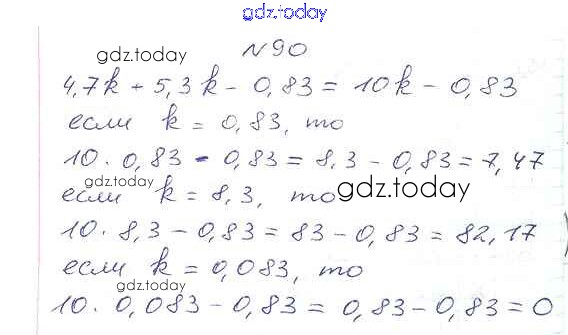 gdz.today
gdz.today
№90
4,7k + 5,3k - 0,83 = 10k - 0,83
если k = 0,83, то
10 · 0,83 - 0,83 = 8,3 - 0,83 = 7,47
gdz.today
если k = 8,3, то
gdz.today
10 · 8,3 - 0,83 = 83 - 0,83 = 82,17
если k = 0,083, то
10 · 0,083 - 0,83 = 0,83 - 0,83 = 0